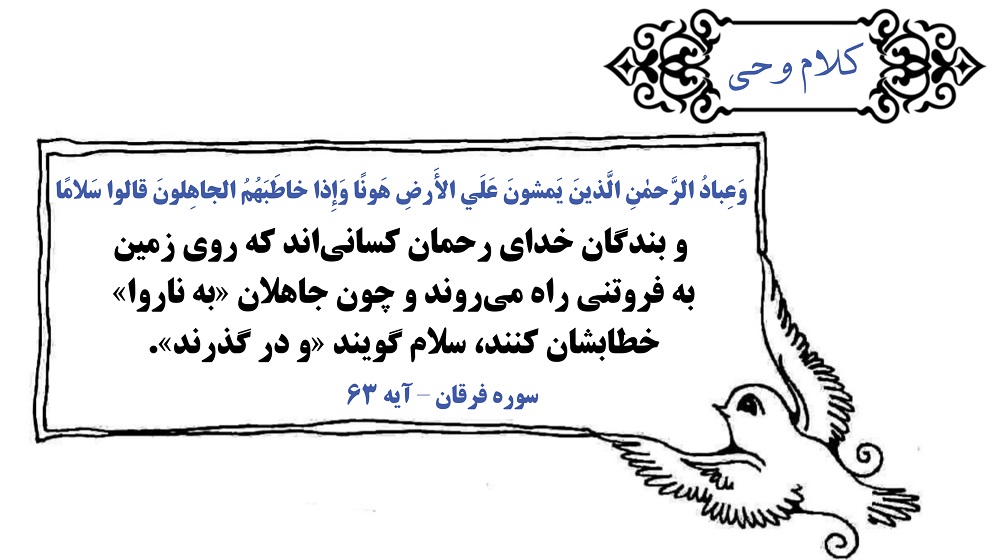 کلام وحی
وَعِبادُ الرَّحمٰنِ الَّذينَ يَمشونَ عَلَي الأَرضِ هَونًا وَإِذا خاطَبَهُمُ الجاهِلونَ قالوا سَلامًا
و بندگان خدای رحمان کسانی‌اند که روی زمین
به فروتنی راه می‌روند و چون جاهلان «به ناروا»
خطابشان کنند، سلام گویند «و در گذرند».
سوره فرقان – آیه ۶۳